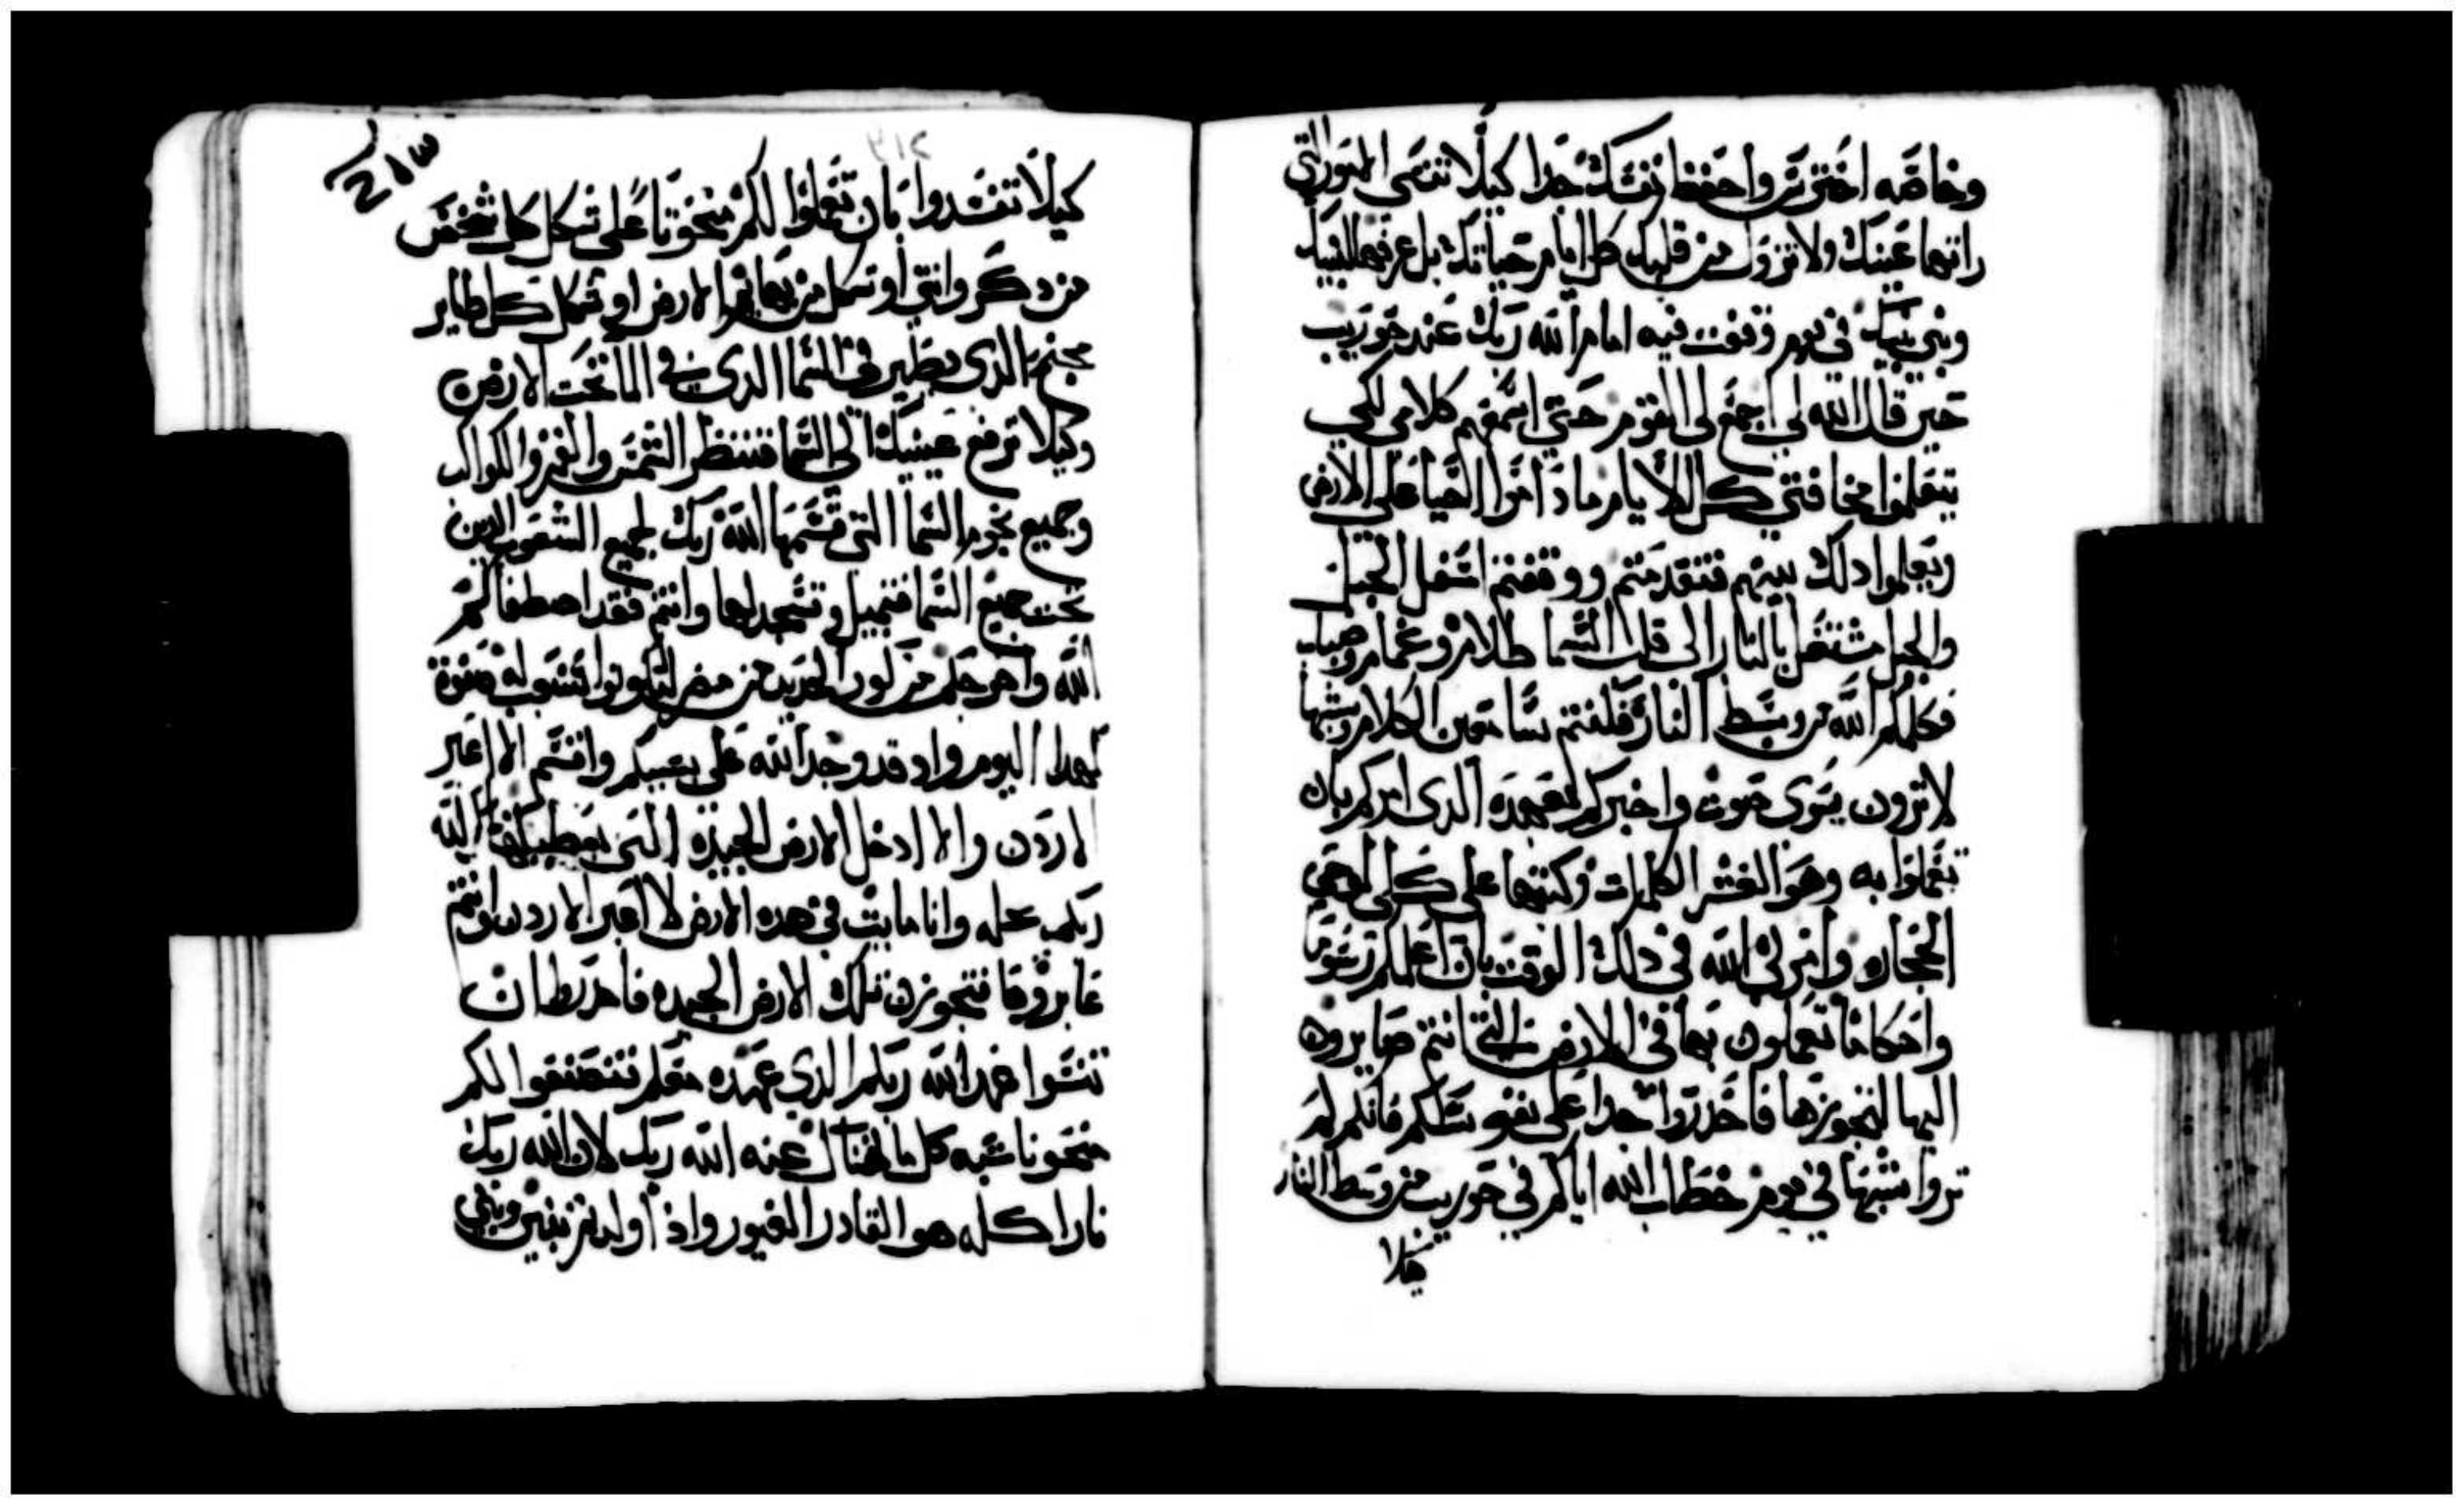 وخاصه احترس واحفظ نفسك جدا كيلا تنسى الامور التي
راتهما عينك ولا تزول من قلبك كل ايام حياتك بل عرفهما لبنيك
وبني بنيك في يوم وقفت فيه امام الله ربك عند حوريب
حين قال الله لي اجمع لي القوم حتى اسمعهم كلامي لكي
يتعلموا مخافتي كل الايام ما داموا احيا على الارض
ويعلموا دلك بنيهم فتقدمتم ووقفتم اسفل الجبل
والجبل مشتعل بالنار الى قلب السما ظلام وغمام وضباب
فكلمكم الله من وسط النار فلفتم سامعين الكلام وشبها
لا ترون سوى صوت واخبركم بعهده الدى امركم بان
تعملوا به وهو العشر الكلمات وكتبها على لوحي
الحجاره وامرني الله في دلك الوقت بان اعلمكم رسوما
واحكاما تعملون بها في الارض التي انتم صايرون
اليها لتجوزها فاحدروا جدا على نفوسكم فانكم لم
تروا شبها في يوم خطاب الله اياكم في حوريب من وسط النار
كيلا
213
كيلا تفسدوا بان تعملوا لكم منحوتا على شكل كل شخص
من دكر وانثى او شكل من بهايم الارض او شكل كل طاير
مجنح الذي يطير في السما الدى في الما تحت الارض
وكيلا ترفع عينيك الى السما فتنظر الشمس والقمر والكواكب
وجميع نجوم السما التي قسمها الله ربك لجميع الشعوب الدين
تحت جميع السما فتميل وتسجد لها وانتم فقد اصطفاكم
الله واخرجكم من كور الحديد من مصر لتكونوا له صفوة
كهدا اليوم واد قد وجد الله على بسببكم واقسم الا اعبر
الاردن والا ادخل الارض الجيده التي يعطيكها الله
ربك نحله وانا مايت في هده الارض لا اعبر الاردن وانتم
عابروها فتجوزن تلك الارض الجيده فاحدروا ان
تنسوا عهد الله ربكم الذي عهده معكم فتصنعوا لكم
منحوتا شبه كل ما نهاك عنه الله ربك لان الله ربك
نارا اكله هو القادر الغيور واذ اولدتم بنين وبني